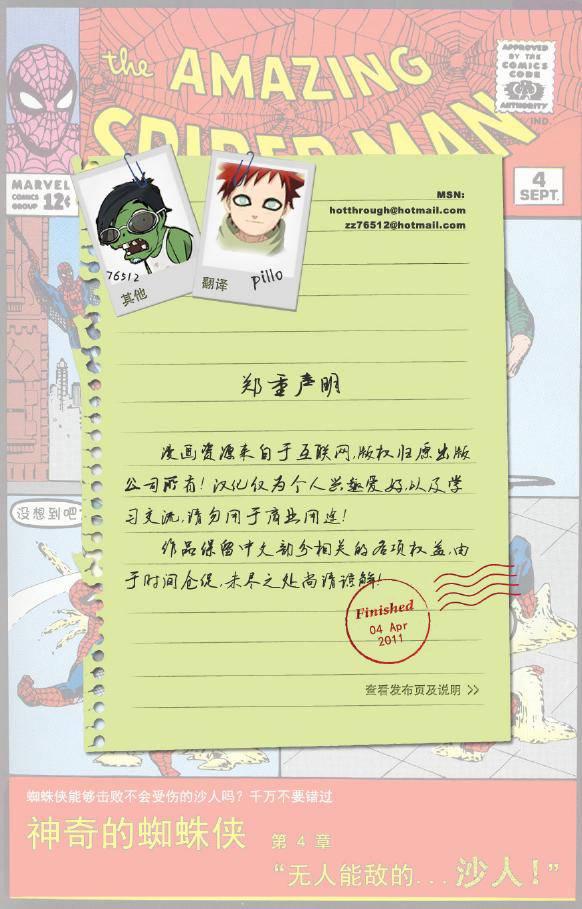 the AMAZING
SPIDER-MAN
APPROVED
BY THE
COMICS
CODE
CA
AUTHORITY
IND.
MARVEL
COMICS
GROUP
12¢
4
SEPT.
MSN:
hotthrough@hotmail.com
zz76512@hotmail.com
76512
其他
翻译
pillo
郑重声明
漫画资源来自于互联网,版权归原出版
公司所有!汉化仅为个人兴趣爱好,以及学
习交流,请勿用于商业用途!
作品保留中文部分相关的各项权益,由
于时间仓促,未尽之处尚请谅解!
没想到吧
Finished
04 Apr
2011
查看发布页及说明 >>
蜘蛛侠能够击败不会受伤的沙人吗?千万不要错过
神奇的蜘蛛侠 第 4 章
“无人能敌的...沙人!”